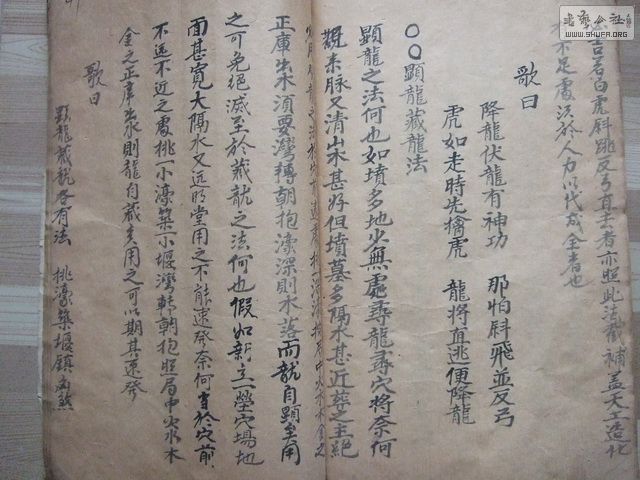 者白虎斜跳反弓直去者亦照此法截補蓋天工造化
不足處法於人力以代成全者也
歌曰
降龍伏龍有神功 那怕斜飛並反弓
虎如走時先擒虎 龍將直逃便降龍
○○顯龍藏龍法
顯龍之法何也如墳多地少無處尋龍尋穴將奈何
觀來脉又清出末甚好但墳墓多隔水甚近葬之主絕
正庫出水須要灣轉朝抱濠深則水落而龍自顯矣用
之可免絕滅至於藏龍之法何也假如新立一塋穴場地
面甚寬大隔水又远明堂用之不能速發奈何宜於穴前
不远不近之處挑一小濠築一小堰灣轉朝抱照局中火水木
金之正庫出水則龍自藏矣用之可以期其速發
歌曰
顯龍藏龍各有法 挑濠築堰鎮為煞
書藝公社
WWW.SHUFA.ORG